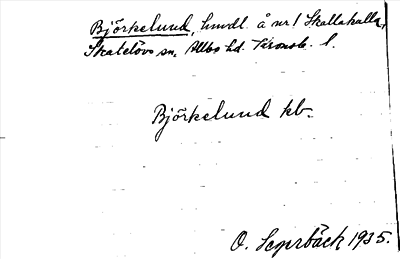 Björkelund, hmdl. å nr 1 Skallakalla,
Skatelövs sn, Allbo hd. Kronob. l.
Björkelund kb.
O. Segerbäck 1935.